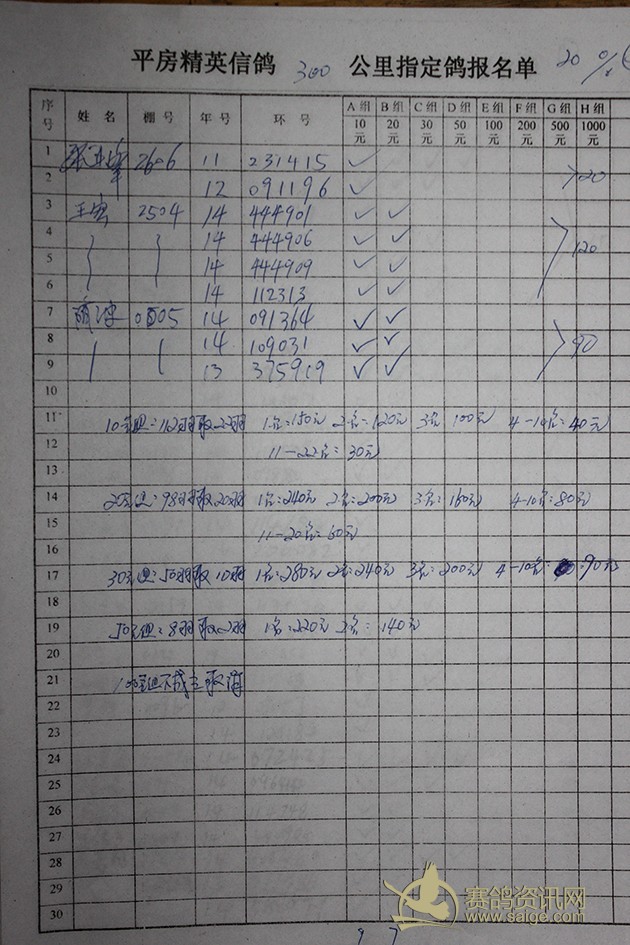 平房精英信鸽 300 公里指定鸽报名单 20
序号 姓名 棚号 年号 环号 A组10元 B组20元 C组30元 D组50元 E组100元 F组200元 G组500元 H组1000元
1 2606 11 231415 ✓
2 12 091196 ✓ >20
3 王 2504 14 444901 ✓ ✓
4 14 444906 ✓ ✓
5 14 444909 ✓ ✓ >120
6 14 112313 ✓ ✓
7 0505 14 091364 ✓ ✓
8 14 109031 ✓ ✓ >90
9 13 375919 ✓ ✓
10
11 10元组:112羽取22羽 1名:150元 2名:120元 3名:100元 4-10名:40元
12 11-22名:30元
13
14 20元组:98羽取20羽 1名:240元 2名:200元 3名:160元 4-10名:80元
15 11-20名:60元
16
17 30元组:50羽取10羽 1名:280元 2名:240元 3名:200元 4-10名:90元
18
19 50元组:8羽取2羽 1名:220元 2名:140元
20
21 100元组不成立取消
22
23
24
25
26
27
28
29
30
赛鸽资讯网
www.saige.com